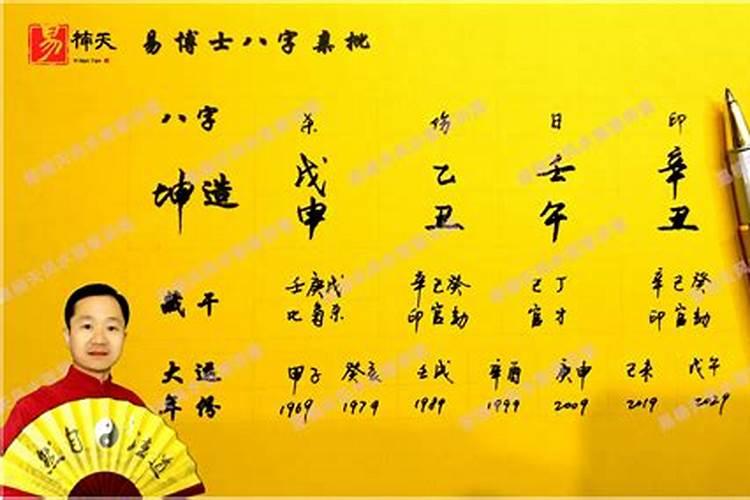 易
楠天
Yi Nan Tian
易博士八字亲批
八字 杀 伤 日 印
坤造 戊 乙 壬 辛
申 丑 午 丑
藏干 壬庚戊 辛己癸 己丁 辛己癸
比枭杀 印官劫 官才 印官劫
大运 甲子 癸亥 壬戌 辛酉 庚申 己未 戊午
年份 1969 1979 1989 1999 2009 2019 2029
然自法道